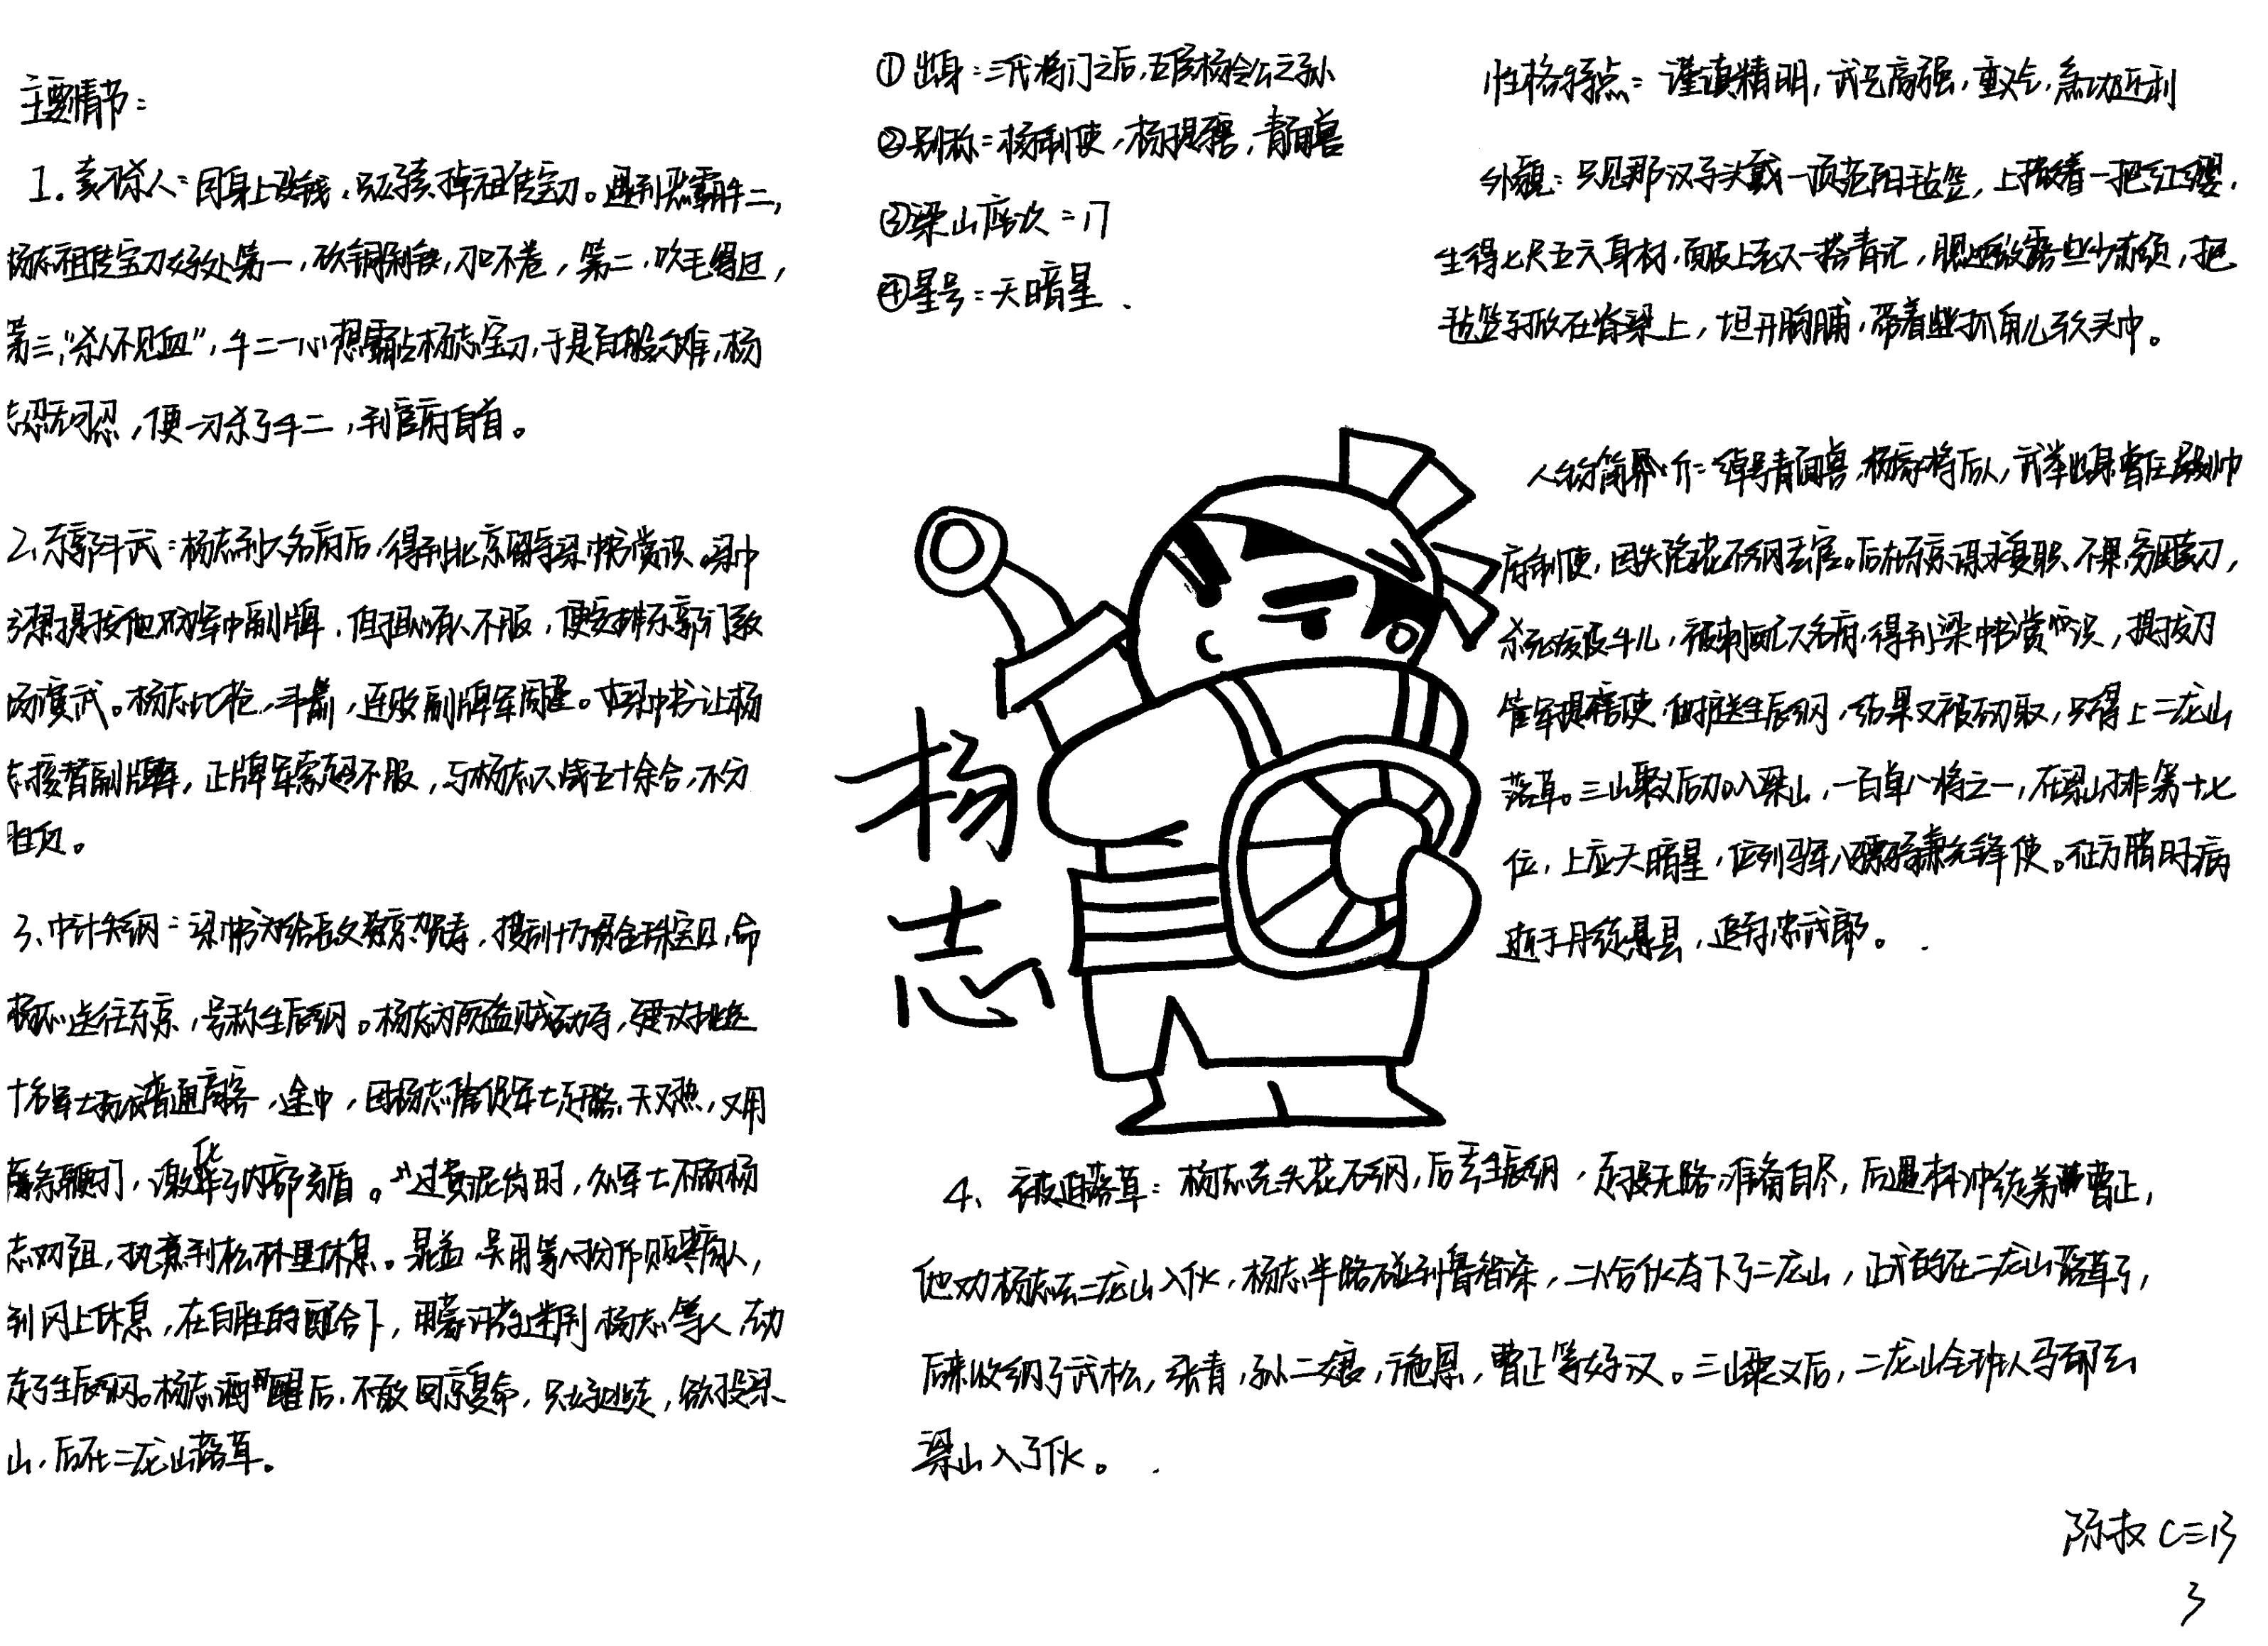 主要情节：
1. 卖刀杀人：因身上没钱，只好卖掉祖传宝刀。遇到恶霸牛二，
杨志祖传宝刀好处第一，砍铜剁铁，刀口不卷，第二，吹毛得过，
第三，“杀人不见血”，牛二一心想霸占杨志宝刀，于是百般刁难，杨
志忍无可忍，便一刀杀了牛二，到官府自首。
2、东郭斗武：杨志到大名府后，得到北京留守梁中书赏识。梁中
书想提拔他为军中副牌，但担心有人不服，便安排东郭门教
场演武。杨志比枪，斗箭，连败副牌军周谨。梁中书让杨
志接替副牌军，正牌军索超不服，与杨志大战五十余合，不分
胜负。
3、中计失纲：梁中书为给岳父蔡京贺寿，搜刮十万贯金珠宝贝，命
杨志送往东京，号称生辰纲。杨志为防盗贼动手，建议挑选
十名军士扮成普通商客，途中，因杨志催促军士赶路，天又热，又用
藤条鞭打，激化了内部矛盾。过黄泥岗时，众军士不顾杨
志劝阻，执意到松林里休息。晁盖、吴用等八扮作贩枣商人，
到冈上休息，在白胜的配合下，用蒙汗药迷倒杨志等人，劫
走了生辰纲。杨志酒醒后，不敢回京复命，只好逃走，欲投梁
山，后在二龙山落草。
①出身：三代将门之后，五侯杨令公之孙
②别称：杨制使，杨提辖，青面兽
③梁山座次：17
④星号：天暗星
杨
志
性格特点：谨慎精明，武艺高强，重义气，急功近利
外貌：只见那汉子头戴一顶范阳毡笠，上撒着一把红缨，
生得七尺五六身材，面皮上老大一搭青记，腮边微露些少赤须，把
毡笠子掀在脊梁上，坦开胸脯，带着些抓角儿软头巾。
人物简介：绰号青面兽，杨家将后人，武举出身曾任殿帅
府制使，因失陷花石纲丢官。后在东京谋求复职不果，穷困卖刀，
杀死泼皮牛儿，被刺配大名府，得到梁中书赏识，提拔为
管军提辖使，护送生辰纲，结果又被劫取，只得上二龙山
落草。三山聚义后加入梁山，一百单八将之一，在梁山排第十七
位，上应天暗星，位列马军八骠骑兼先锋使。征方腊时病
逝于丹徒县，追封忠武郎。
4、被迫落草：杨志先失花石纲，后丢生辰纲，走投无路，准备自尽，后遇林冲徒弟曹正，
他劝杨志去二龙山入伙，杨志半路碰到鲁智深，二人合伙夺下了二龙山，正式的在二龙山落草了，
后来收纳了武松，张青，孙二娘，施恩，曹正等好汉。三山聚义后，二龙山全班人马都去
梁山入了伙。
3